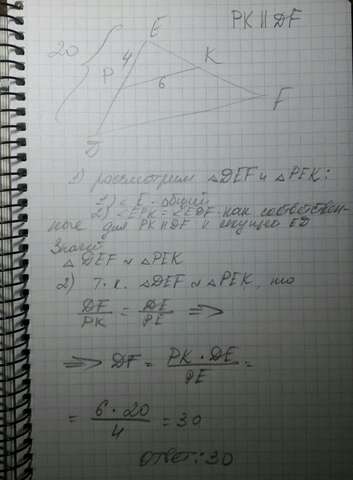 PK || DF
E
20
4
P
K
6
F
D
1) рассмотрим △DEF и △PEK:
1) ∠E - общий
2) ∠EPK = ∠EDF как соответствен-
ные для PK || DF и секущей ED
Значит
△DEF ∾ △PEK
2) Т.к. △DEF ∾ △PEK, то
DF/PK = DE/PE =>
=> DF = PK · DE/PE =
= 6 · 20/4 = 30
Ответ: 30